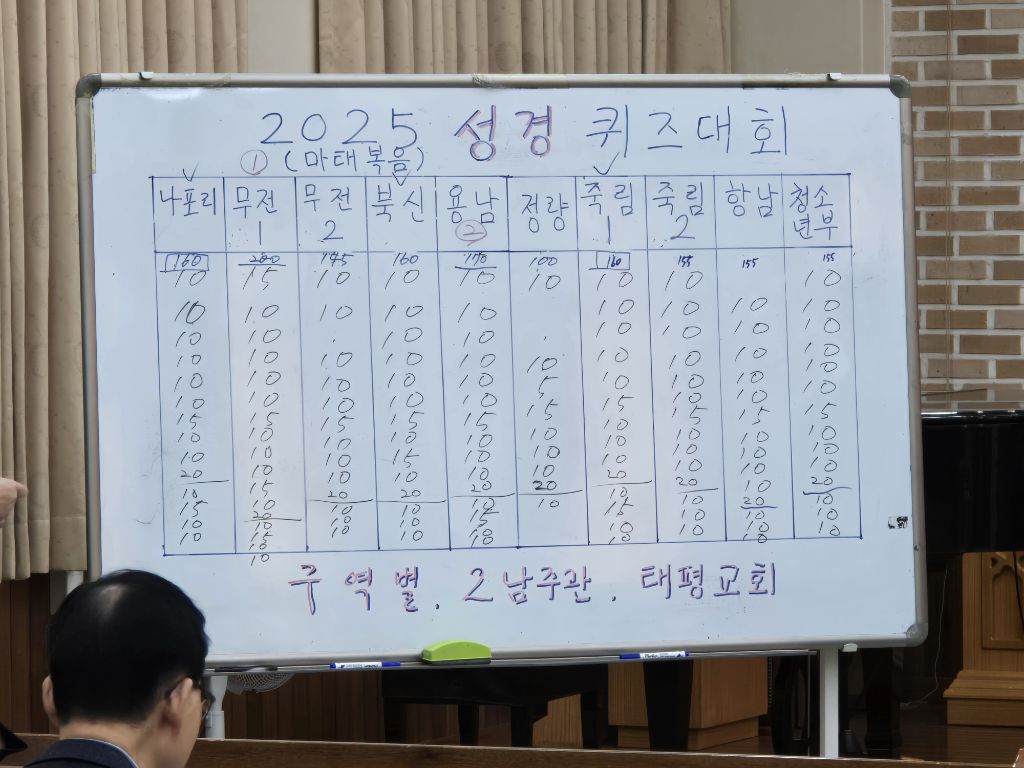 2025 성경 퀴즈대회
① (마태복음)
나포리 무전 1 무전 2 북신 용남 ② 정량 죽림 1 죽림 2 항남 청소년부
160 200 145 160 170 100 160 155 155 155
10 15 10 10 10 10 10 10 10
10 10 10 10 10 10 10 10 10
10 10 10 10 10 10 10 10
10 10 10 10 10 10 10 10 10 10
10 10 10 10 10 5 10 10 10 10
15 10 10 10 10 15 15 10 10 15
10 15 15 15 15 10 10 15 15 10
10 10 10 10 10 10 10 10 10 10
20 10 10 15 10 20 20 10 10 10
10 15 20 10 20 10 10 20 10 20
15 10 10 20 10 15 10 20 10
10 20 10 10 15 10 10 10 10
10 10 10 10 10 10 10
15
10
구역별. 2남주관. 태평교회